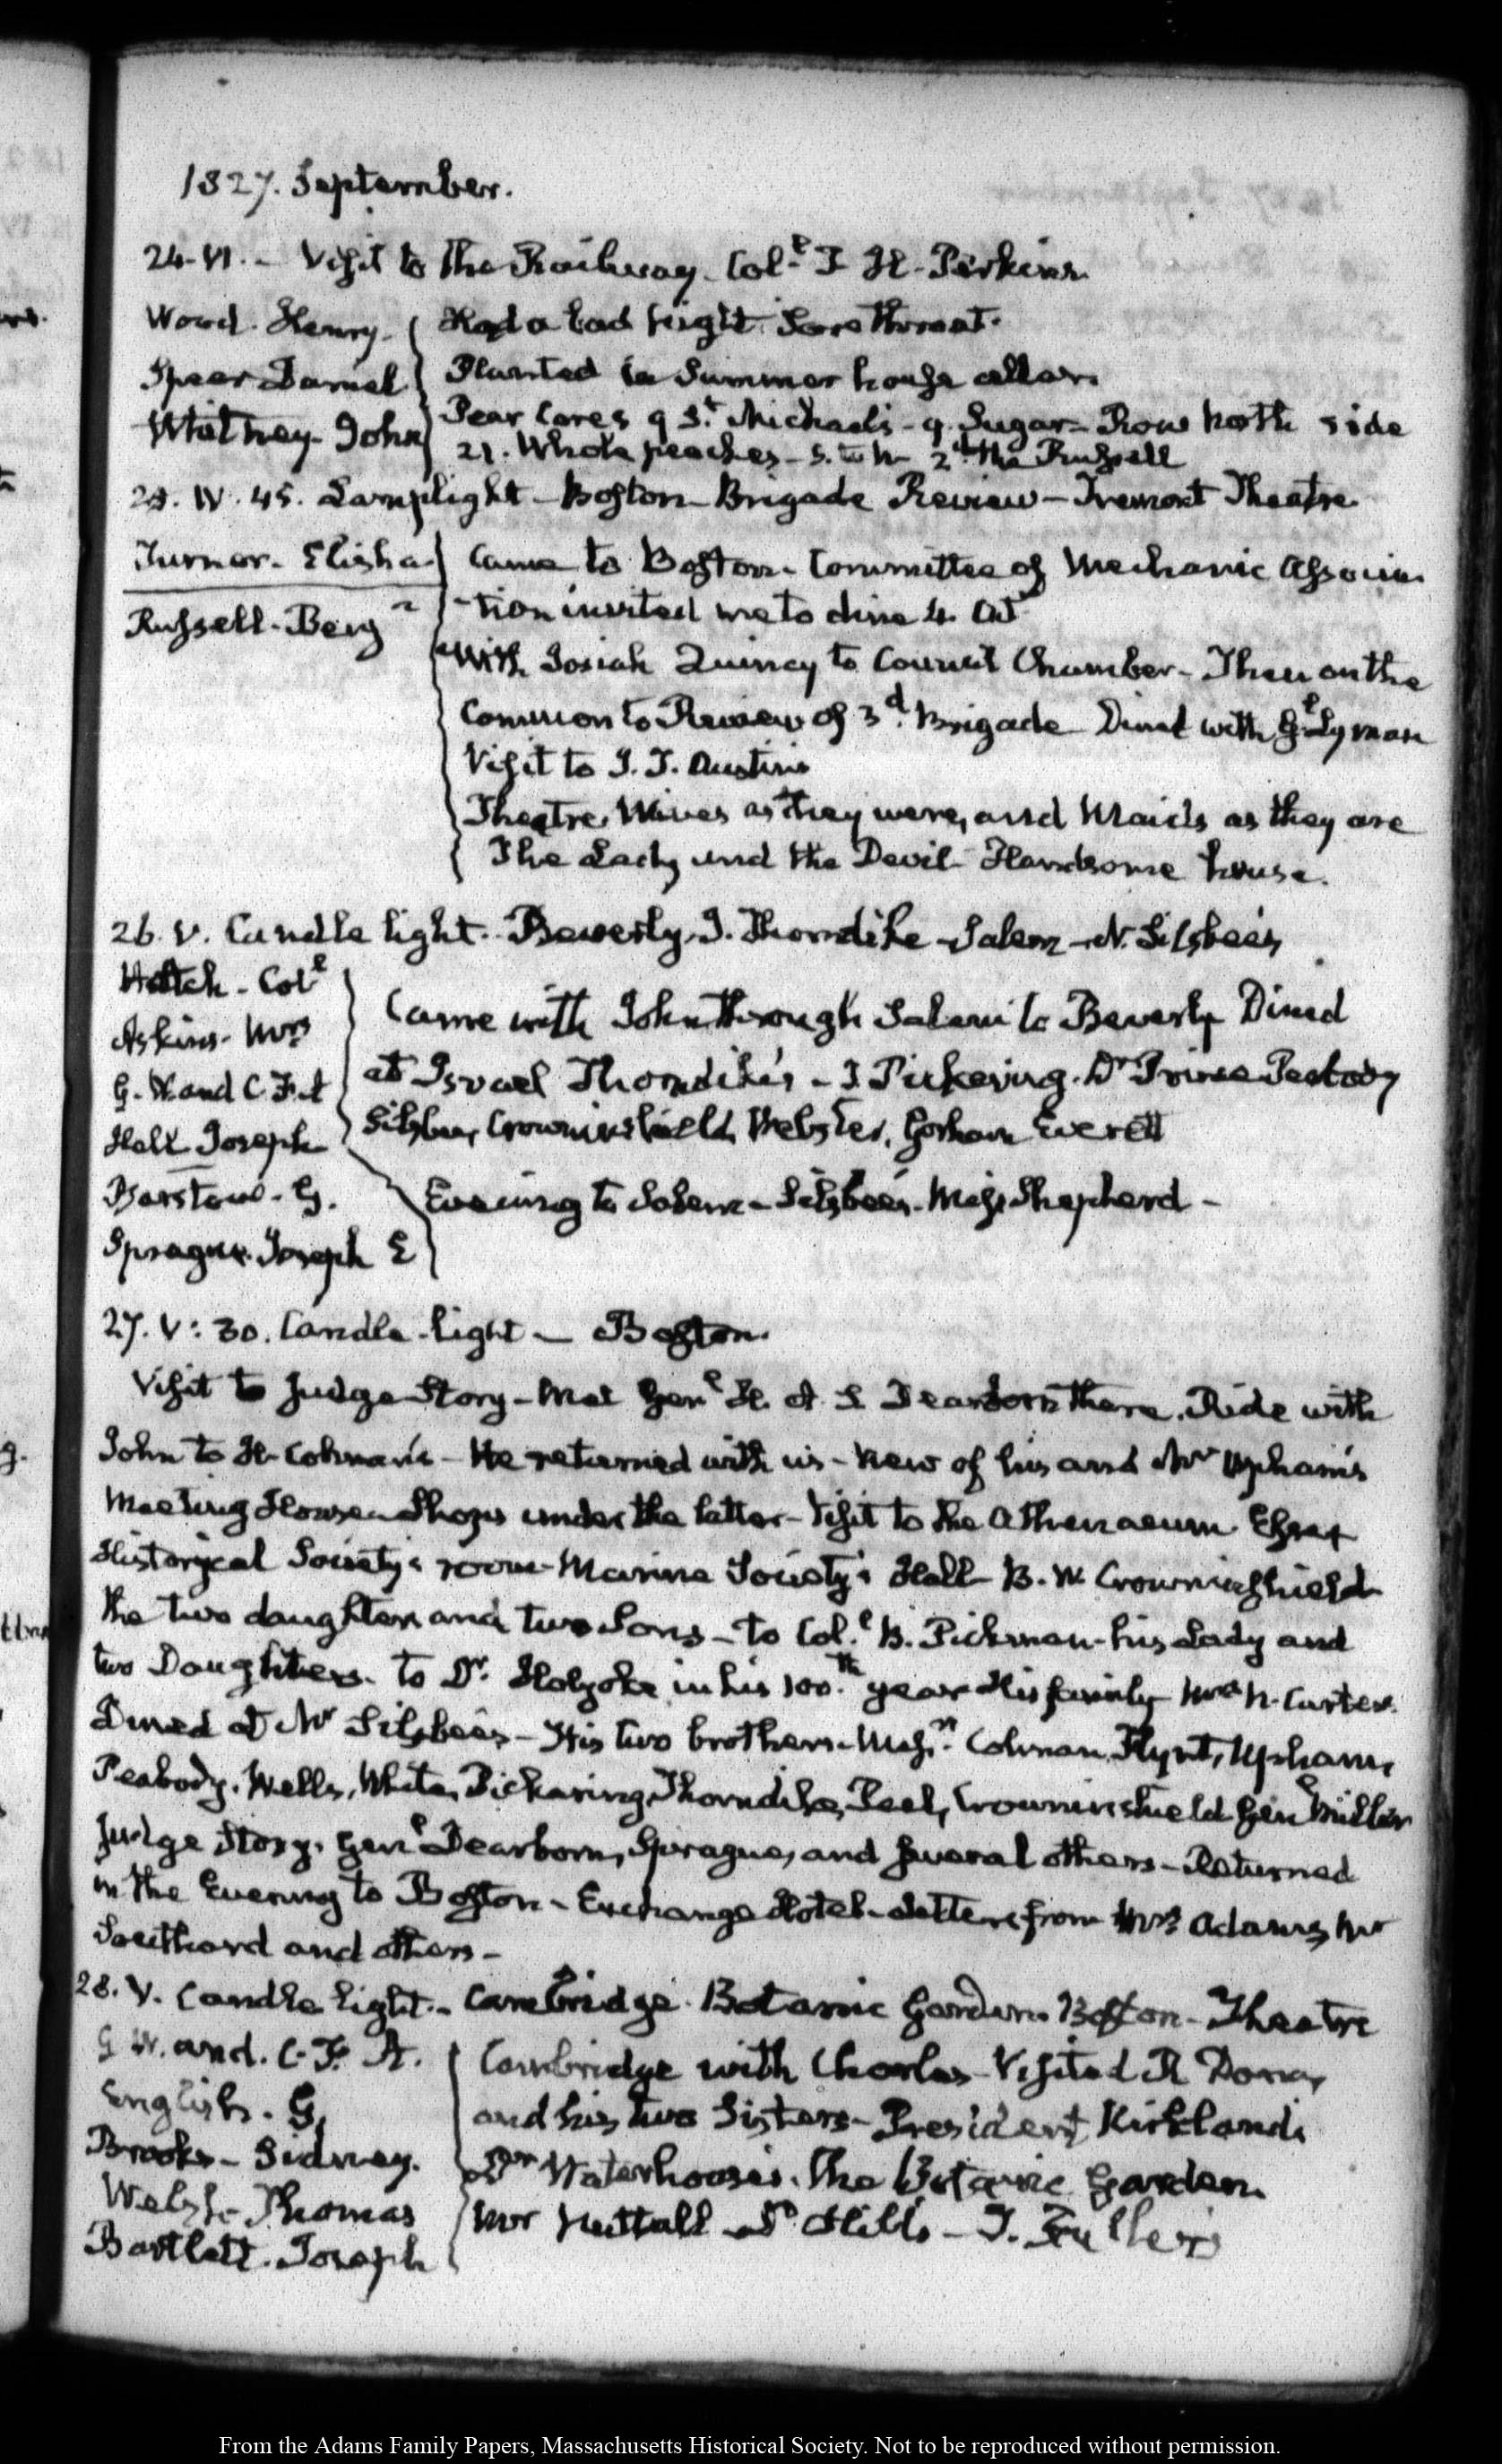 1827. September.
24. VI. – Visit to the Railway. Col.l T H. Perkins.
Wood. Henry. Had a bad night. Sore throat.
Spear Daniel Planted in Summer house cellar.
Whitney. John Pear Cores 9 St. Michaels – 9. Sugar – Row North side
21. Whole peaches – S. to N. 2d. the Russell
25. IV. 45. Lamplight – Boston – Brigade Review – Tremont Theatre
Turner. Elisha. Came to Boston. Committee of Mechanic Associa-
-tion invited me to dine 4. Oct
Russell. Benjn
With Josiah Quincy to Council Chamber – Then on the
Common to Review of 3d. Brigade Dined with Gl Lyman
Visit to J. T. Austin's
Theatre. Wives as they were, and Maids as they are
The Lady and the Devil – Handsome house.
26. V. Candle light. Beverly. I. Thorndike – Salem – N. Silsbee's
Hatch – Coll
Askins – Mrs Came with John through Salem to Beverly Dined
G. W. and C. F. A at Israel Thorndike's – T Pickering. Dr Prince Peabody
Hall Joseph Silsbee, Crowninshield, Webster, Gorham Everett
Barstow. G. Evening to Salem – Silsbee's. Miss Shepherd –
Sprague. Joseph E
27. V: 30. Candle light – Boston.
Visit to Judge Story – Met Genl H. A. S Dearborn there. Ride with
John to H. Colman's – He returned with us – View of his and Mr Upham's
Meeting Houses – Shops under the latter – Visit to the Athenaeum Essex
Historical Society's room – Marine Society's Hall – B. W. Crowninshield
the two daughters and two Sons – To Col.l B. Pickman – his Lady and
two Daughters. To Dr. Holyoke in his 100.th year His family Mrs N. Carter.
Dined at Mr Silsbee's – His two brothers. Messrs. Colman, Flynt, Upham,
Peabody. Wells, White, Pickering, Thorndike, Peel, Crowninshield Genl Miller
Judge Story, Genl Dearborn, Sprague, and several others – Returned
in the Evening to Boston – Exchange Hotel – Letters from Mrs Adams, Mr
Southard and others –
28. V. Candle light. – Cambridge. Botanic Garden. Boston – Theatre
G W. and. C. F. A. Cambridge with Charles – Visited R Dana,
English. G. and his two Sisters – President Kirkland's
Brooks – Sidney. Dr Waterhouse's. The Botanic Garden.
Welsh – Thomas Mr Nuttall – Dr. Hill's – T. Fuller's
Bartlett. Joseph